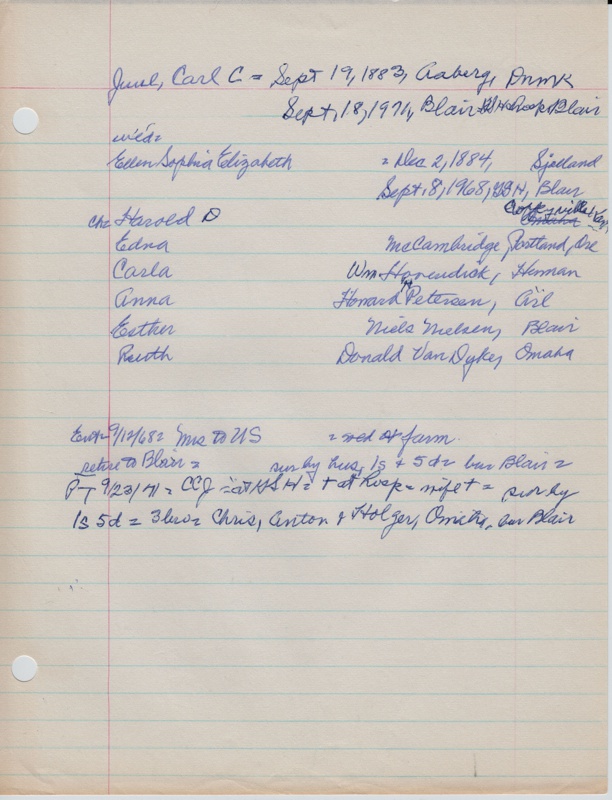 Juul, Carl C = Sept 19, 1883, Aaberg, Dnmk
Sept, 18, 1971, Blair Hosp Blair
wed=
Ellen Sophia Elizabeth = Dec 2, 1884, Sjelland
Sept, 8, 1968, GSH, Blair
Coffeyville Kan,
ch= Harold D Omaha
Edna McCambridge, Portland, Ore
Carla Wm Hovendick, Herman
Anna Howard Petersen, Arl
Esther Niels Nielsen, Blair
Ruth Donald Van Dyke, Omaha
Ent= 9/12/68= Mrs to US = wed farm.
retire to Blair = sur by hus, 1s + 5d = bur Blair =
P-T 9/23/71 = CCJ = at GSH = + at hosp = wife + = sur by
1s 5d = 3 bro = Chris, Anton + Holger, Omaha, bur Blair